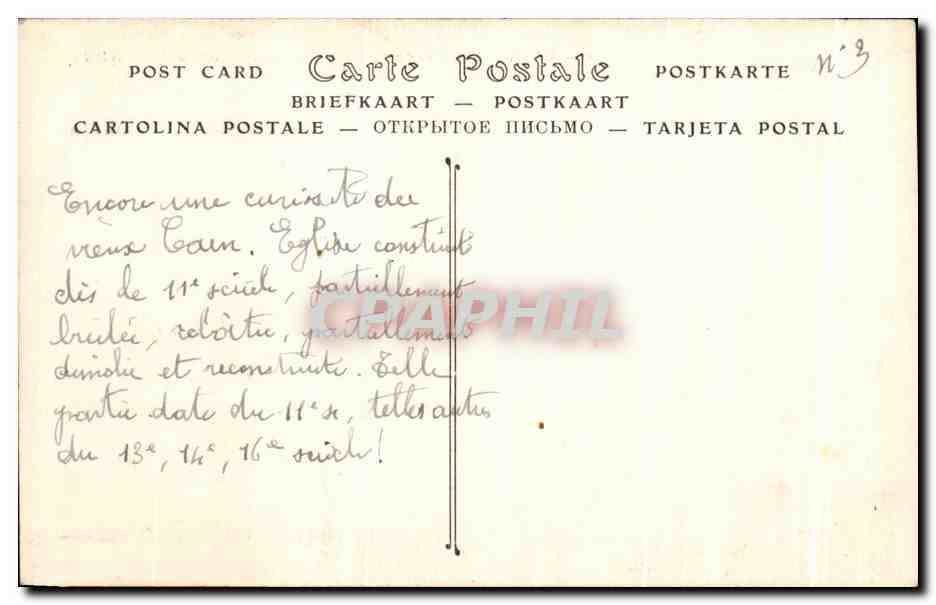 POST CARD Carte Postale POSTKARTE n°3
BRIEFKAART — POSTKAART
CARTOLINA POSTALE — ОТКРЫТОЕ ПИСЬМО — TARJETA POSTAL
Encore une curiosité du
vieux Caen. Eglise construit
dès le 11e siècle, partiellement
brûlée, rebâtie, partiellement
démolie et reconstruite. Telle
partie date du 11e s, telles autres
du 13e, 14e, 16e siècle!
CPAPHIL